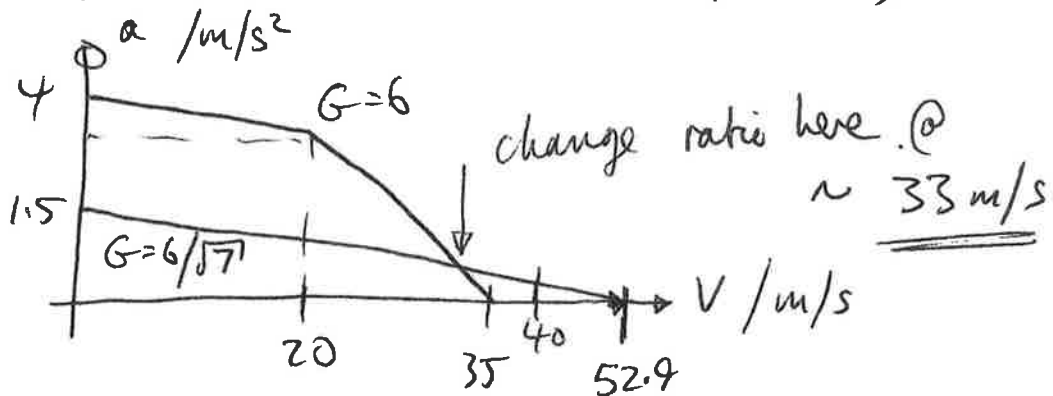 a /m/s²
4
G=6
change ratio here @
~ 33 m/s
1.5
G=6/√7
V /m/s
20
35
40
52.9